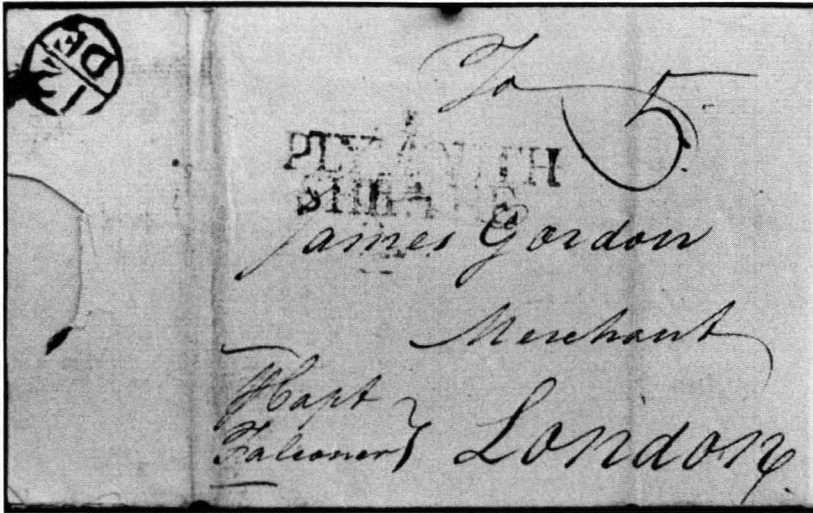 To 5
PLYMOUTH
SHIP
James Gordon
Merchant
Capt
Falconer } London
12
DE